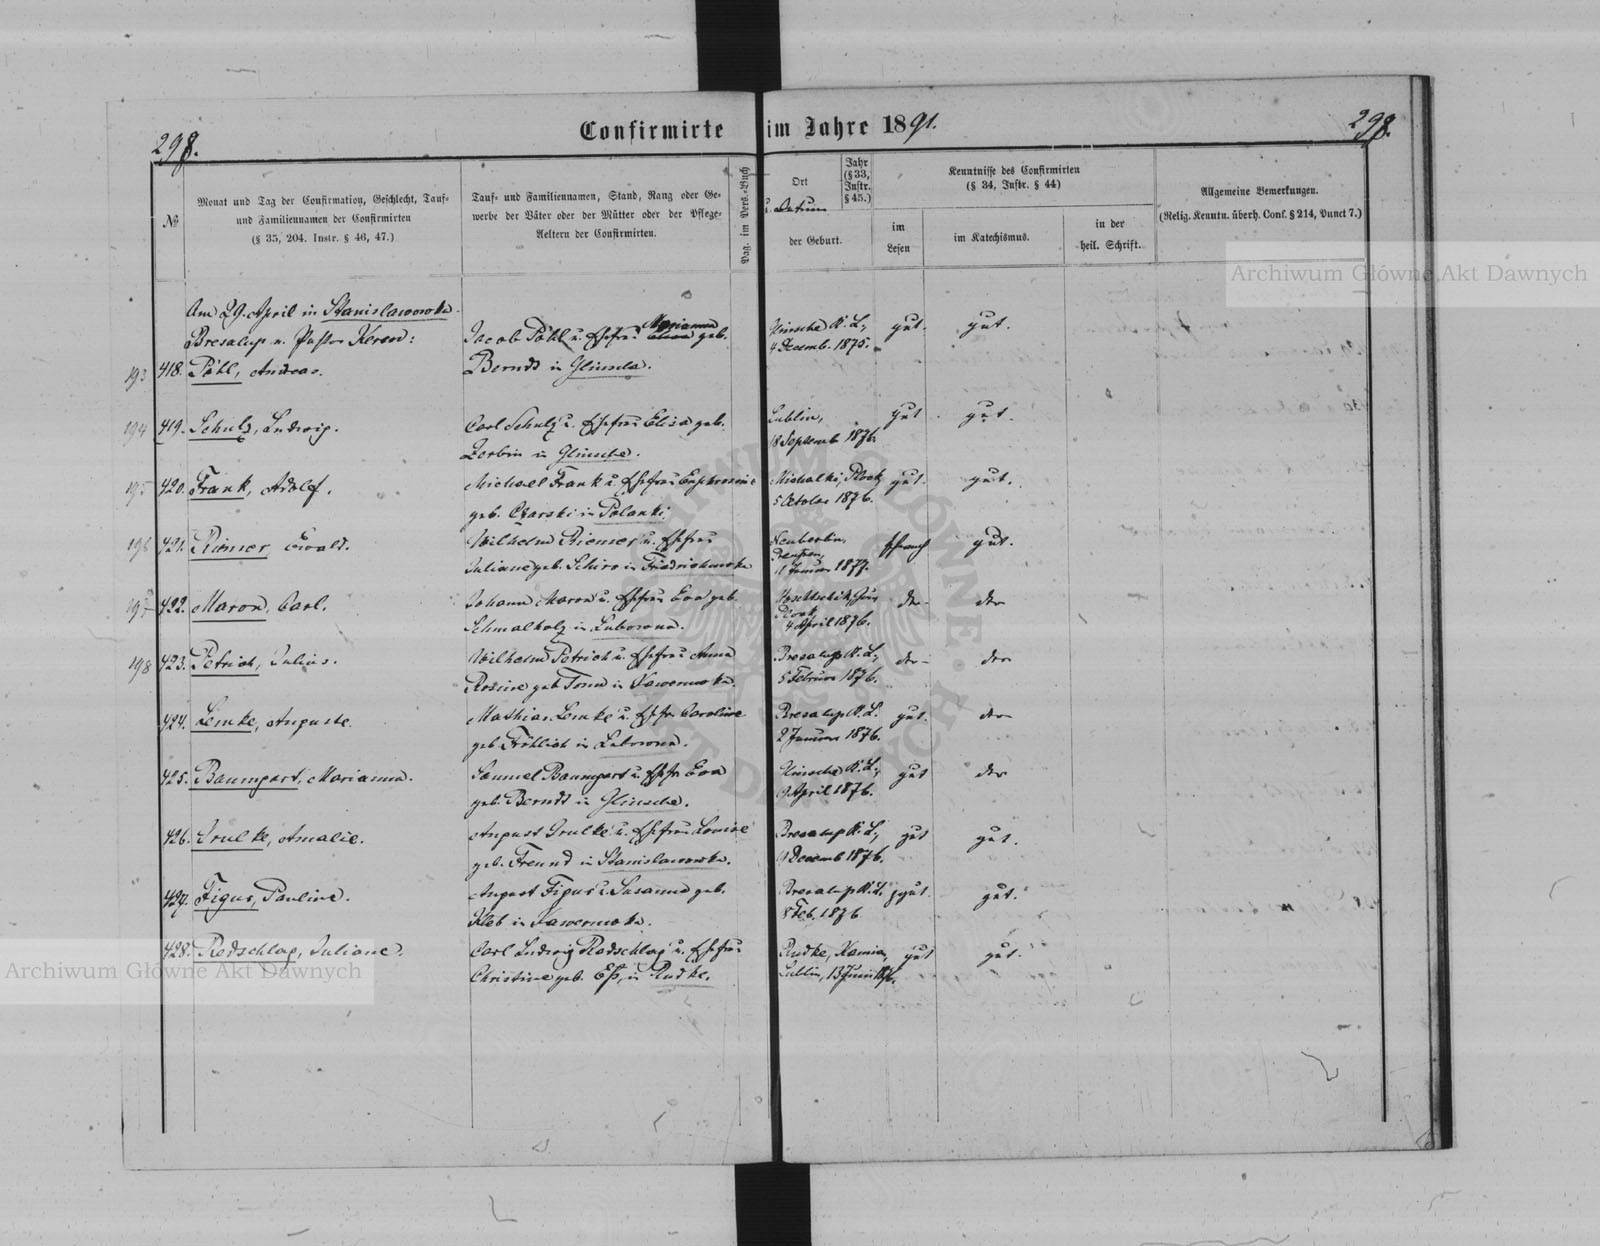 298.
Confirmirte im Jahre 1891.
298.
№
Monat und Tag der Confirmation, Geschlecht, Tauf-
und Familiennamen der Confirmirten
(§ 35, 204. Instr. § 46, 47.)
Tauf- und Familiennamen, Stand, Rang oder Ge-
werbe der Väter oder der Mütter oder der Pflege-
Aeltern der Confirmirten.
Pag. im Pers.-Buch
Ort
u. Datum
der Geburt.
Jahr
(§ 33,
Instr.
§ 45.)
Kenntnisse des Confirmirten
(§ 34, Instr. § 44)
im
Lesen
im Katechismus.
in der
heil. Schrift.
Allgemeine Bemerkungen.
(Relig. Kenntn. überh. Cons. § 214, Punct 7.)
Archiwum Główne Akt Dawnych
Am 29. April in Stanislawowka
Pastor
193 418. Pöhl, Andreas.
Jacob Pöhl u. Ehefrau Marianna geb.
Berndt in Glinsche.
K. L.,
4 Decemb. 1875.
gut. gut.
194 419. Schulz, Ludwig.
Carl Schulz u. Ehefrau Elisa geb.
Zerbin in Glinsche.
Lublin,
18 Septemb 1876.
gut. gut.
195 420. Frank, Adolf.
Michael Frank u. Ehefrau Euphrosine
geb. Czarski in Polanki
Michalki, Plock
5 October 1876.
gut. gut.
196 421. Riemer, Ewald.
Wilhelm Riemer u. Ehefrau
Juliane geb. Schirr in Friedrichowka
Neuberlin,
Preussen,
11 Januar 1877.
schwach gut.
197 422. Maron, Carl.
Johann Maron u. Ehefrau Eva geb.
Schmalholz in Luborona.
Plock
4 April 1876.
der der
198 423. Petrich, Julius.
Wilhelm Petrich u. Ehefrau Anna
Rosine geb Tonn in Xawerowka.
Bresalup K. L.,
5 Februar 1876.
der der
424. Lemke, Auguste.
Mathias Lemke u. Ehefr. Caroline
geb. Fröhlich in Luborona.
Bresalup K. L.
2 Januar 1876.
gut. der
425. Baumgart, Marianna.
Samuel Baumgart u. Ehefr. Eva
geb. Berndt in Glinsche.
Glinsche K. L.,
9. April 1876.
gut der
426. Grulke, Amalie.
August Grulke u. Ehefrau Louise
geb. Freund in Stanislawowka.
Bresalup K. L.,
9 Decemb 1876.
gut gut.
427. Figur, Pauline.
August Figur u. Susanna geb.
Kleb in Xawerowka.
Bresalup K. L.
8 Feb. 1876
gut. gut.
428. Radschlag, Juliane.
Carl Ludwig Radschlag u. Ehefrau
Christine geb. Eß, in Rudke.
Rudke, Kamin,
Lublin, 13 Juni
gut gut.
Archiwum Główne Akt Dawnych